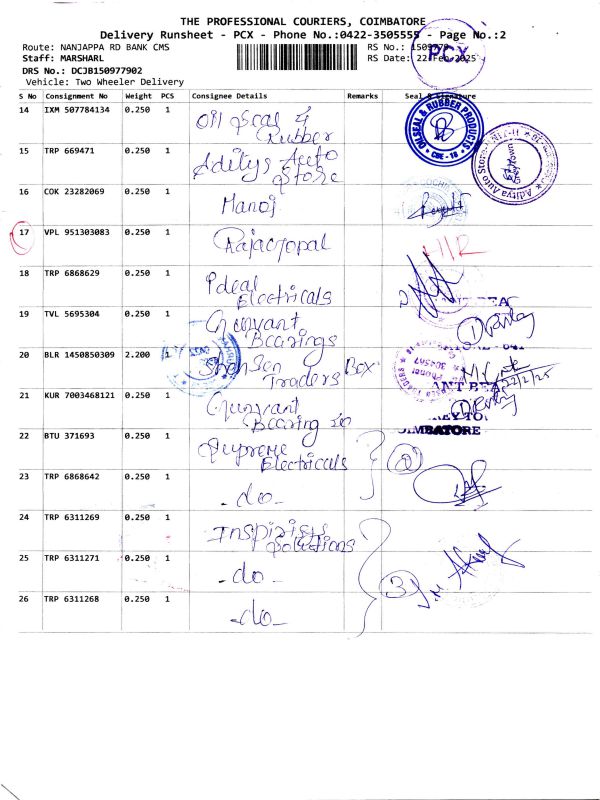 THE PROFESSIONAL COURIERS, COIMBATORE
Delivery Runsheet - PCX - Phone No.:0422-3505555 - Page No.:2
Route: NANJAPPA RD BANK CMS
RS No.:
Staff: MARSHARL
RS Date: 22-Feb-2025
PCX
DRS No.: DCJB150977902
Vehicle: Two Wheeler Delivery
S No Consignment No Weight PCS Consignee Details Remarks Seal & Signature
14 IXM 507784134 0.250 1 Oil Seal & Rubber
OIL SEAL & RUBBER PRODUCTS
CBE - 18
15 TRP 669471 0.250 1 Aditya Auto Store
Aditya Auto Store
16 COK 23282069 0.250 1 Manoj
17 VPL 951303083 0.250 1 Rajagopal
18 TRP 6868629 0.250 1 Ideal Electricals
19 TVL 5695304 0.250 1 Gunvant Bearings
1
20 BLR 1450850309 2.200 1 Traders Box
22/2/25
21 KUR 7003468121 0.250 1 Gunvant Bearing
22 BTU 371693 0.250 1 Supreme Electricals
2
COIMBATORE
23 TRP 6868642 0.250 1 - do -
24 TRP 6311269 0.250 1 Solutions
25 TRP 6311271 0.250 1 - do -
3
26 TRP 6311268 0.250 1 - do -